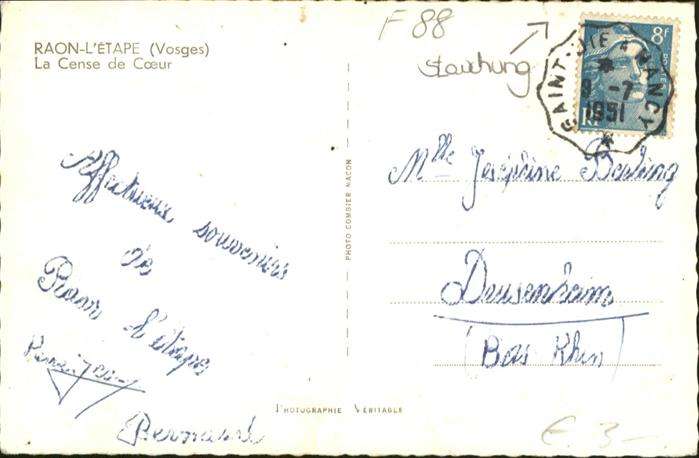 RAON-L'ÉTAPE (Vosges)
La Cense de Cœur
F 88
Stauchung
8f
POSTES
RF
SAINT-DIÉ A NANCY
9 -7
1951
Affectueux souvenirs
de
Raon l'étape
Bernard
PHOTO COMBIER MACON
Mlle Joséphine
Drusenheim
(Bas Rhin)
PHOTOGRAPHIE VÉRITABLE
€ 3-